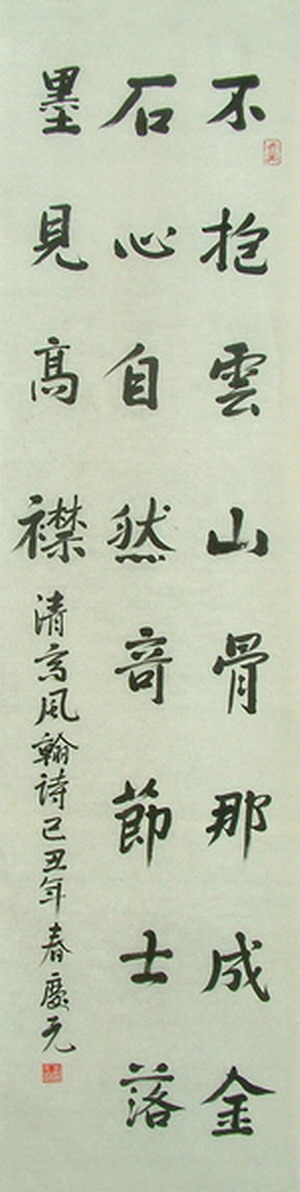 不抱雲山骨那成金
石心自然奇節士落
墨見高襟
清高風翰詩己丑年春慶元